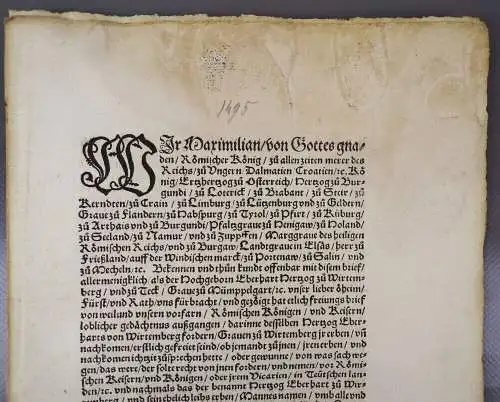 1495
WIr Maximilian/von Gottes gna-
den/Römischer König/zů allen zeiten merer des
Reichs/zů Vngern Dalmatien Croatien/ꝛc. Kö-
nig/Ertzhertzog zů Osterreich/Hertzog zů Bur-
gundi/zů Loterick/zů Brabant/zů Steir/zů
Kernndten/zů Crain/zů Limburg/zů Lützenburg vnd zů Geldern/
Graue zů Flandern/zů Habspurg/zů Tyrol/zů Pfirt/zů Kyburg/
zů Arthais vnd zů Burgundi/Pfaltzgraue zů Henigaw/zů Holand/
zů Seeland/zů Namur/vnd zů Zupffen/Marggraue des heiligen
Römischen Reichs/vnd zů Burgaw/Landtgraue in Elsäs/herr zů
Frießland/auff der Windischen marck/zů Portenaw/zů Salin/vnd
zů Mecheln/ꝛc. Bekennen vnd thůn kundt offenbar mit disem brief/
allermeniglich/als der Hochgeborn Eberhart Hertzog zů Wirtem-
berg/vnd zů Teck/Graue zů Mümppelgart/ꝛc. vnser lieber öheim/
Fürst/vnd Rath/vns fürbracht/vnd gezöigt hat etlich freiungs brief
von weilund vnsern vorfarn/Römischen Königen/vnd Keisern/
loblicher gedächtnus außgangen/darinne desselben Hertzog Eber-
harts von Wirtemberg fordern/Grauen zů Wirtemberg jr erben/vñ
nachkomen/erstlich gefreiet seind/ob jemandt zů jnen/jren erben/vnd
nachkomen ichtzit zů sprechen hette/oder gewunne/von was sach we-
gen/das were/der solte recht von jnen fordern/vnd nemen/vor Römi-
schen Keisern/vnd Königen/oder jrem Vicarien/in Teütschen lan-
den/ꝛc. vnd nachmals das der benant Hertzog Eberhart zů Wir-
temberg/vnd sein ehelich leibs erben/Mannes namen/vmb all vnd